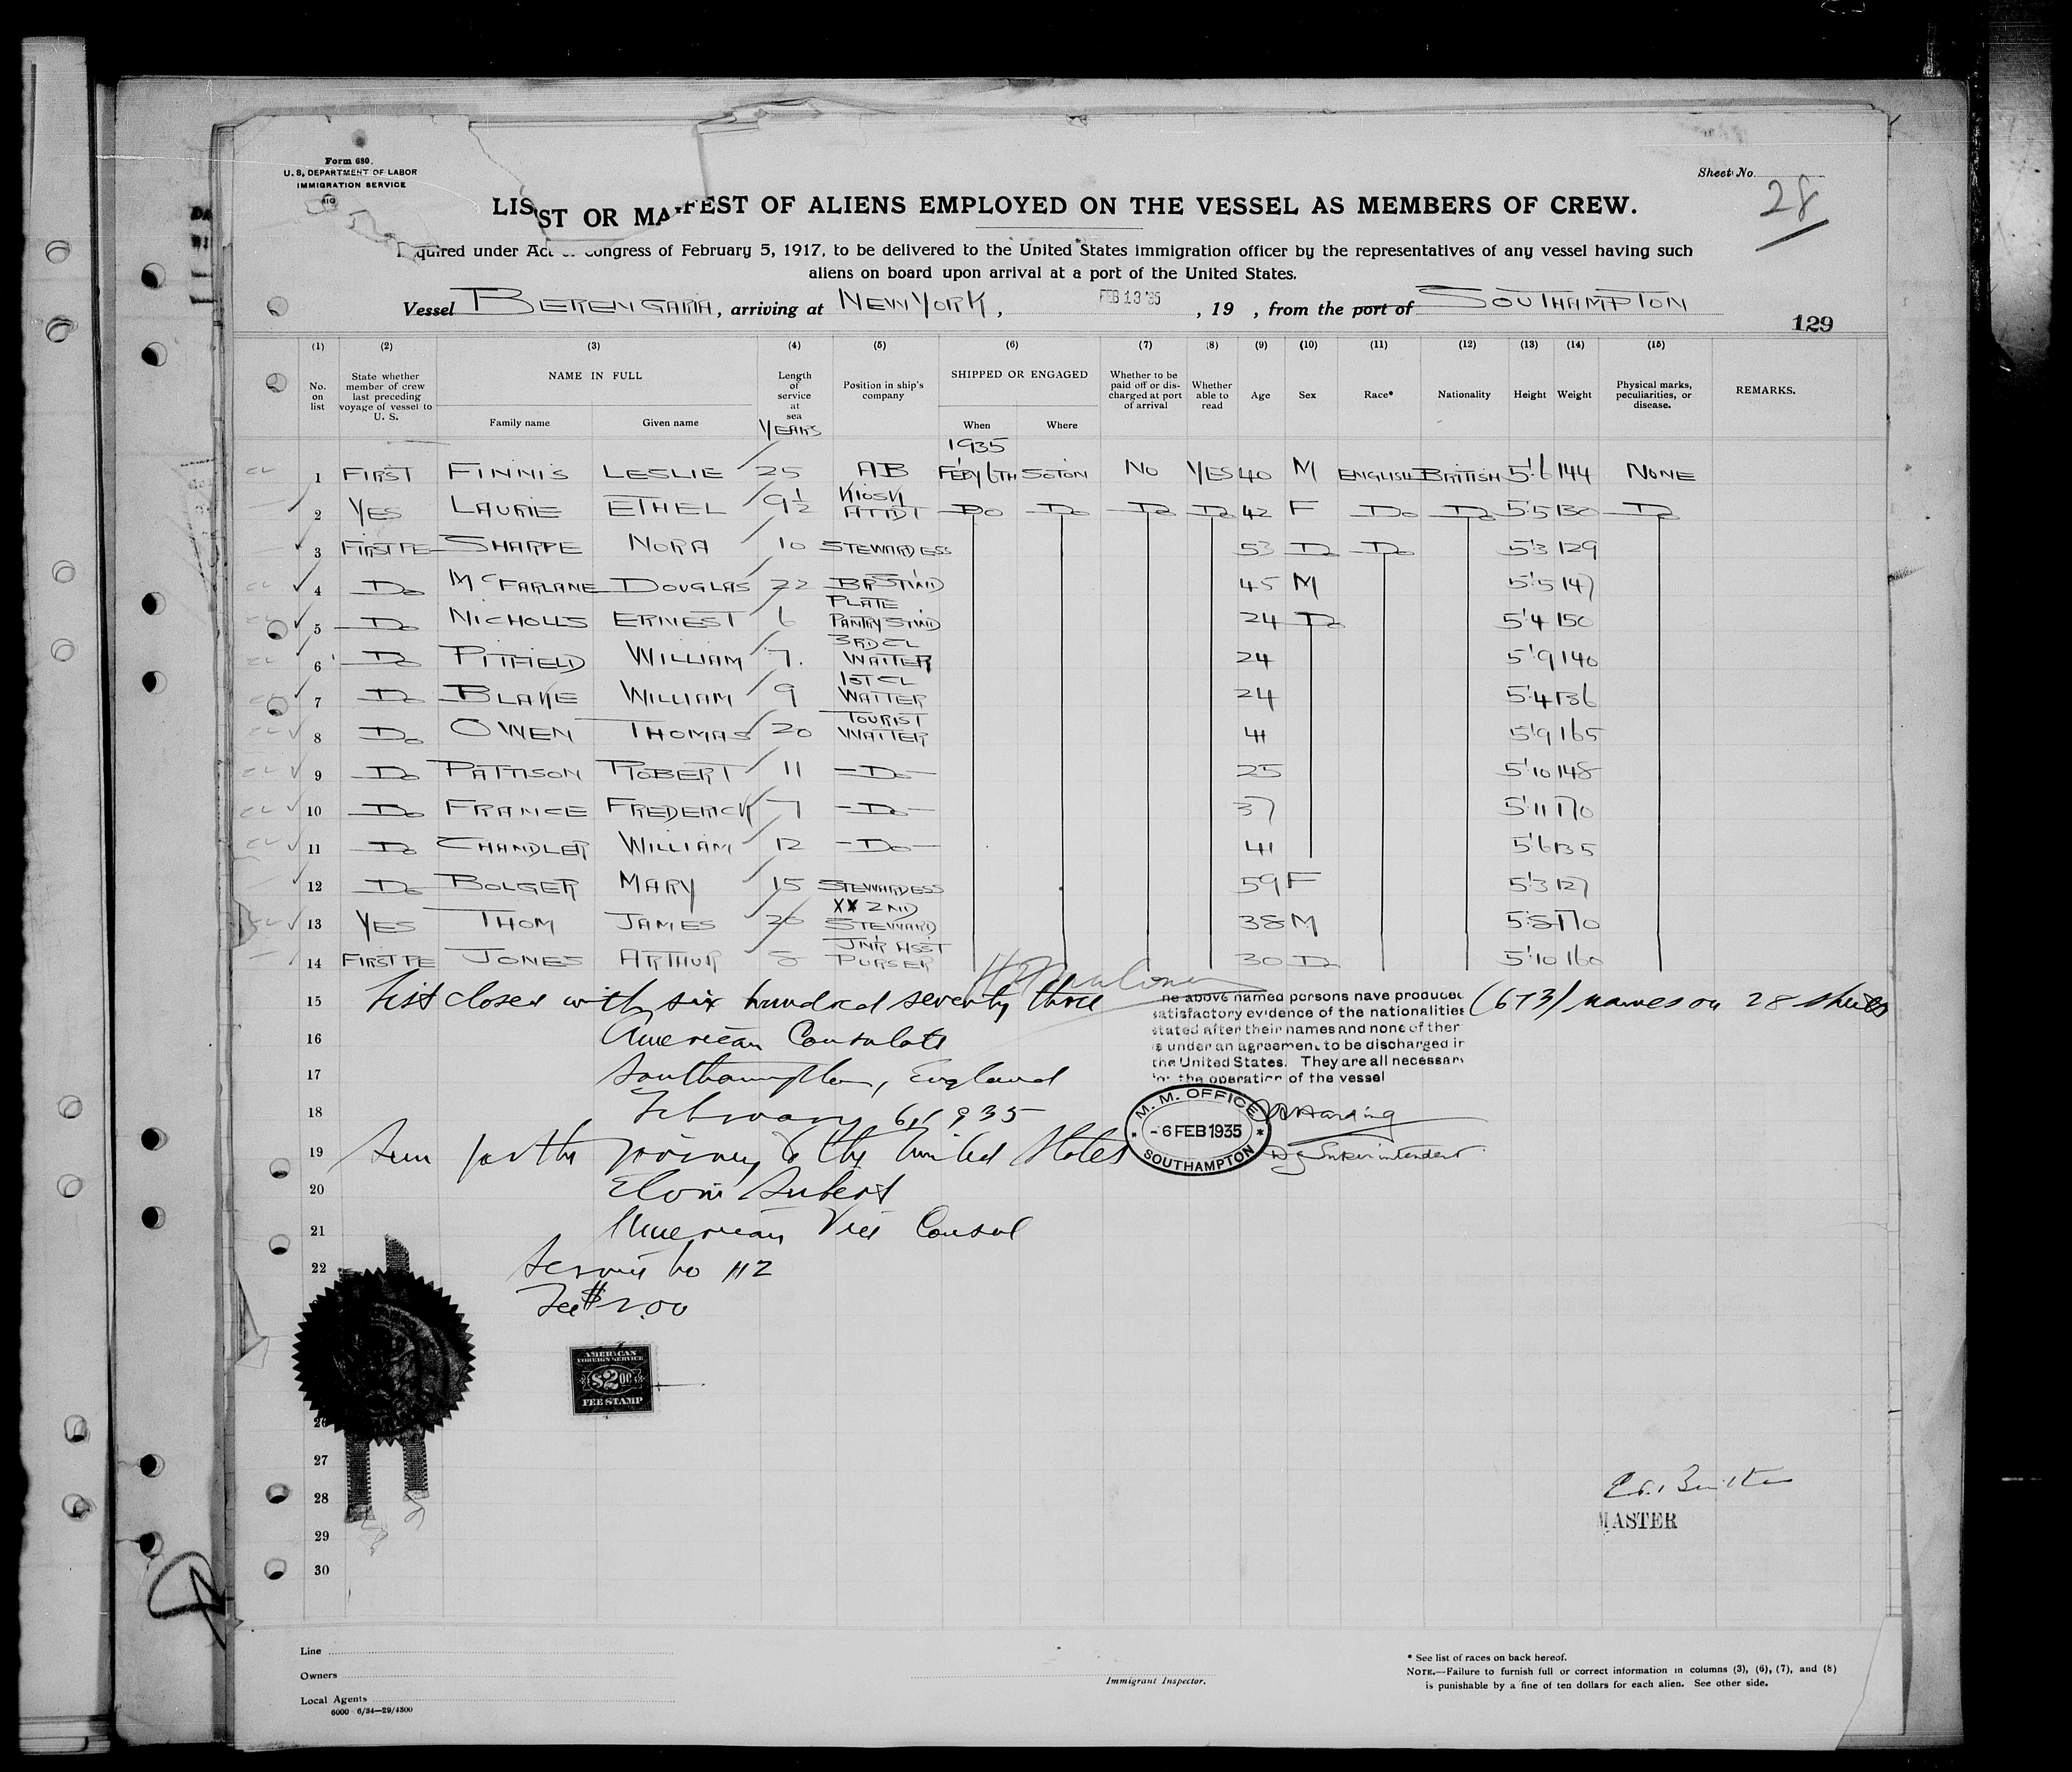 Form 680.
U. S. DEPARTMENT OF LABOR
IMMIGRATION SERVICE
Sheet No. 28
LIST OR MANIFEST OF ALIENS EMPLOYED ON THE VESSEL AS MEMBERS OF CREW.
Required under Act of Congress of February 5, 1917, to be delivered to the United States immigration officer by the representatives of any vessel having such
aliens on board upon arrival at a port of the United States.
Vessel BERENGARIA, arriving at NEW YORK, FEB 13 '35, 19 , from the port of SOUTHAMPTON
129
(1) (2) (3) (4) (5) (6) (7) (8) (9) (10) (11) (12) (13) (14) (15)
No. on list State whether member of crew last preceding voyage of vessel to U. S. NAME IN FULL Family name Given name Length of service at sea YEARS Position in ship's company SHIPPED OR ENGAGED When Where Whether to be paid off or discharged at port of arrival Whether able to read Age Sex Race* Nationality Height Weight Physical marks, peculiarities, or disease. REMARKS.
1935
1 FIRST FINNIS LESLIE 25 AB FEBY 6TH SOTON NO YES 40 M ENGLISH BRITISH 5'6 144 NONE
2 YES LAURIE ETHEL 9½ KIOSK ATTDT DO DO DO DO 42 F DO DO 5'5 130 DO
3 FIRST RE SHARPE NORA 10 STEWARDESS 53 DO DO 5'3 129
4 DO McFARLANE DOUGLAS 22 BR STWD 45 M 5'5 147
5 DO NICHOLLS ERNEST 6 PLATE PANTRY STWD 24 DO 5'4 150
6 DO PITFIELD WILLIAM 7. 3RD CL WAITER 24 5'9 140
7 DO BLAKE WILLIAM 9 1ST CL WAITER 24 5'4 136
8 DO OWEN THOMAS 20 TOURIST WAITER 41 5'9 165
9 DO PATTISON ROBERT 11 -DO- 25 5'10 148
10 DO FRANCE FREDERICK 7 -DO- 37 5'11 170
11 DO CHANDLER WILLIAM 12 -DO- 41 5'6 135
12 DO BOLGER MARY 15 STEWARDESS 59 F 5'3 127
13 YES THOM JAMES 20 XX 2ND STEWARD 38 M 5'8 170
14 FIRST RE JONES ARTHUR 8 JNR ASST PURSER 30 DO 5'10 160
15 List closed with six hundred seventy three (673) names on 28 sheets
The above named persons have produced
satisfactory evidence of the nationalities
stated after their names and none of them
is under an agreement to be discharged in
the United States. They are all necessary
for the operation of the vessel
16 American Consulate
17 Southampton, England
18 February 6, 1935
M. M. OFFICE
-6 FEB 1935
SOUTHAMPTON
Harding
Dy Superintendent
19 Seen for the journey to the United States
20
21 American Vice Consul
22 Service No 112
Fee $2.00
AMERICAN
FOREIGN SERVICE
$2.00
FEE STAMP
26
27
28
29
30
MASTER
Line
Owners
Local Agents
6000 6/34—29/4300
Immigrant Inspector.
* See list of races on back hereof.
NOTE.—Failure to furnish full or correct information in columns (3), (6), (7), and (8)
is punishable by a fine of ten dollars for each alien. See other side.